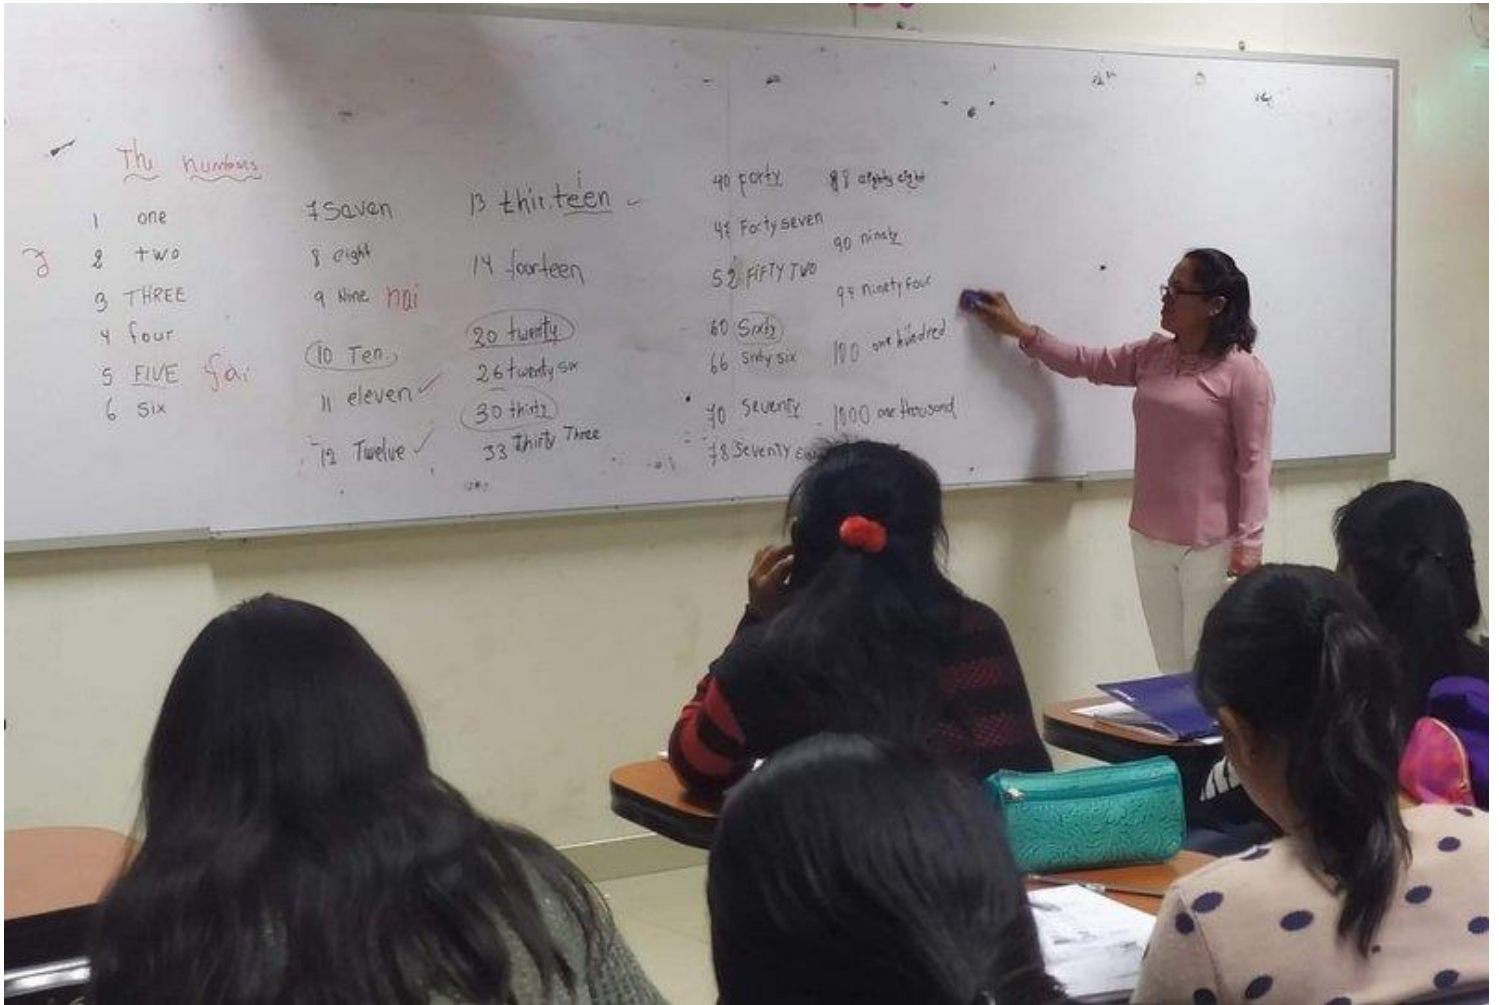 The numbers
1 one
2 two
3 THREE
4 four
5 FIVE fai
6 six
7 Seven
8 eight
9 Nine nai
10 Ten
11 eleven
12 Twelve
13 thirteen
14 fourteen
20 twenty
26 twenty six
30 thirty
33 Thirty Three
40 forty
47 Forty seven
52 FIFTY TWO
60 Sixty
66 Sixty six
70 Seventy
78 Seventy
88 eighty eight
90 ninety
94 ninety four
100 one hundred
1000 one thousand